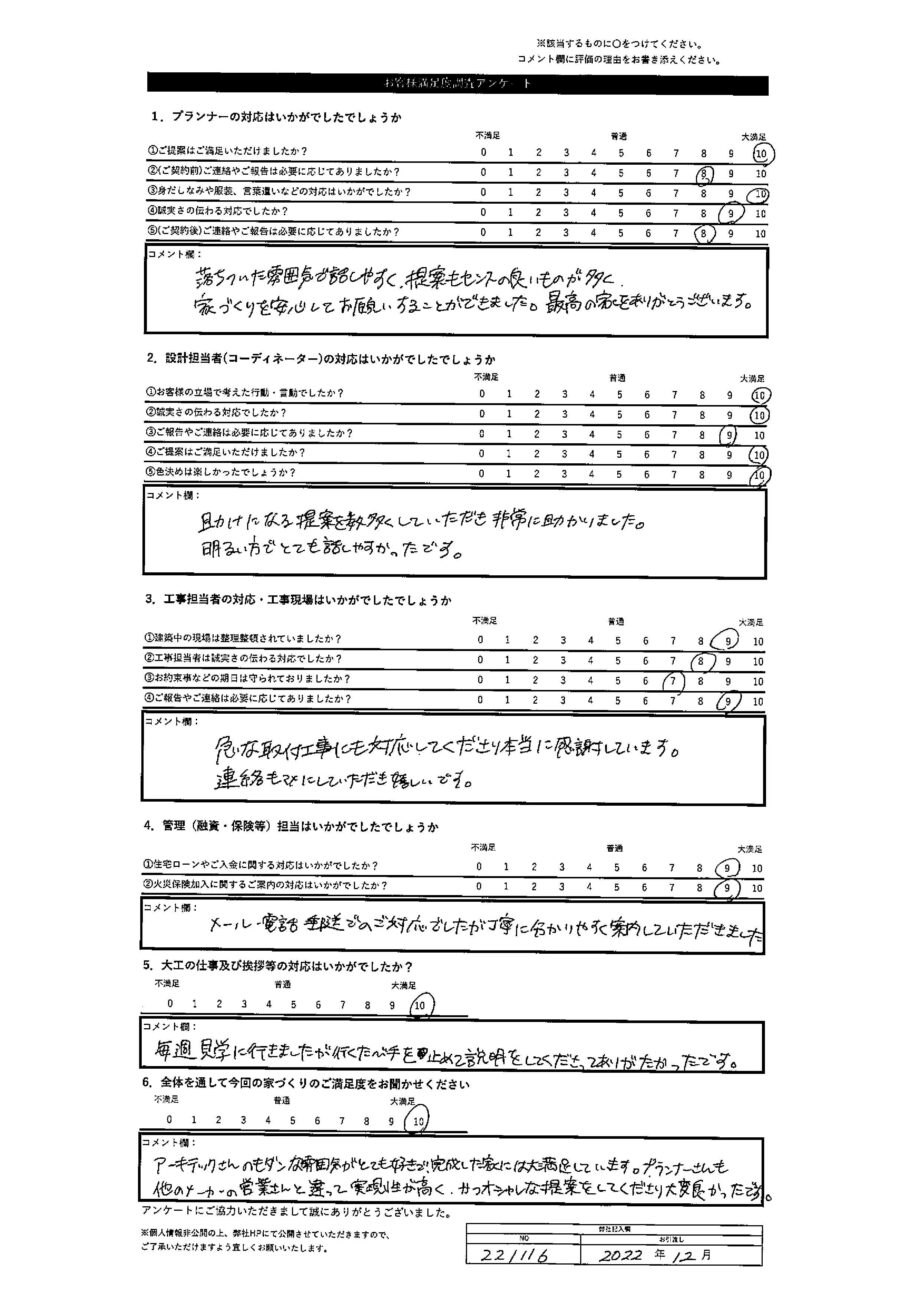 ※該当するものに○をつけてください。
コメント欄に評価の理由をお書き添えください。
お客様満足度調査アンケート
1．プランナーの対応はいかがでしたでしょうか
不満足 普通 大満足
①ご提案はご満足いただけましたか？ 0 1 2 3 4 5 6 7 8 9 10
②(ご契約前)ご連絡やご報告は必要に応じてありましたか？ 0 1 2 3 4 5 6 7 8 9 10
③身だしなみや服装、言葉遣いなどの対応はいかがでしたか？ 0 1 2 3 4 5 6 7 8 9 10
④誠実さの伝わる対応でしたか？ 0 1 2 3 4 5 6 7 8 9 10
⑤(ご契約後)ご連絡やご報告は必要に応じてありましたか？ 0 1 2 3 4 5 6 7 8 9 10
コメント欄：
落ちついた雰囲気で話しやすく、提案もセンスの良いものが多く、
家づくりを安心してお願いすることができました。最高の家をありがとうございます。
2．設計担当者(コーディネーター)の対応はいかがでしたでしょうか
不満足 普通 大満足
①お客様の立場で考えた行動・言動でしたか？ 0 1 2 3 4 5 6 7 8 9 10
②誠実さの伝わる対応でしたか？ 0 1 2 3 4 5 6 7 8 9 10
③ご報告やご連絡は必要に応じてありましたか？ 0 1 2 3 4 5 6 7 8 9 10
④ご提案はご満足いただけましたか？ 0 1 2 3 4 5 6 7 8 9 10
⑤色決めは楽しかったでしょうか？ 0 1 2 3 4 5 6 7 8 9 10
コメント欄：
助けになる提案を数多くしていただき非常に助かりました。
明るい方でとても話しやすかったです。
3．工事担当者の対応・工事現場はいかがでしたでしょうか
不満足 普通 大満足
①建築中の現場は整理整頓されていましたか？ 0 1 2 3 4 5 6 7 8 9 10
②工事担当者は誠実さの伝わる対応でしたか？ 0 1 2 3 4 5 6 7 8 9 10
③お約束事などの期日は守られておりましたか？ 0 1 2 3 4 5 6 7 8 9 10
④ご報告やご連絡は必要に応じてありましたか？ 0 1 2 3 4 5 6 7 8 9 10
コメント欄：
急な取付工事にも対応してくださり本当に感謝しています。
連絡もマメにしていただき嬉しいです。
4．管理（融資・保険等）担当はいかがでしたでしょうか
不満足 普通 大満足
①住宅ローンやご入金に関する対応はいかがでしたか？ 0 1 2 3 4 5 6 7 8 9 10
②火災保険加入に関するご案内の対応はいかがでしたか？ 0 1 2 3 4 5 6 7 8 9 10
コメント欄：
メール・電話・郵送でのご対応でしたが丁寧に分かりやすく案内していただきました
5．大工の仕事及び挨拶等の対応はいかがでしたか？
不満足 普通 大満足
0 1 2 3 4 5 6 7 8 9 10
コメント欄：
毎週見学に行きましたが行くたび手を止めて説明をしてくださってありがたかったです。
6．全体を通して今回の家づくりのご満足度をお聞かせください
不満足 普通 大満足
0 1 2 3 4 5 6 7 8 9 10
コメント欄：
アーキテックさんのモダンな雰囲気がとても好きで！完成した家には大満足しています。プランナーさんも
他のメーカーの営業さんと違って実現性が高く、かつオシャレな提案をしてくださり大変良かったです。
アンケートにご協力いただきまして誠にありがとうございました。
※個人情報非公開の上、弊社HPにて公開させていただきますので、
ご了承いただけますよう宜しくお願いいたします。
弊社記入欄
NO お引渡し
221116 2022 年 12 月